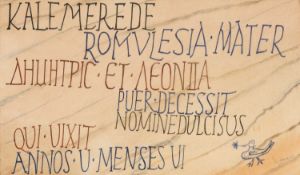 KALEMEREDE
ROMVLESIA·MATER
ΔΗΜΗΤΡΙϹ·ET·ΛΕΟΝΤΙΑ
PUER·DECESSIT
NOMINEDULCISUS
QUI·UIXIT
ANNOS·U·MENSES UI